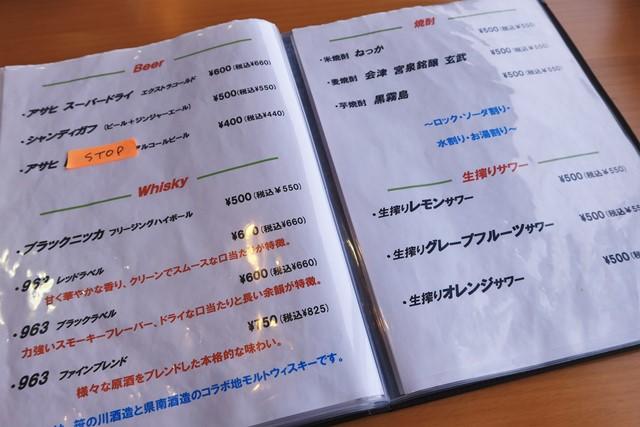 Beer
・アサヒ スーパードライ エクストラコールド ¥600(税込¥660)
・シャンディガフ (ビール+ジンジャーエール) ¥500(税込¥550)
・アサヒ STOP ルコールビール ¥400(税込¥440)
Whisky
・ブラックニッカ フリージングハイボール ¥500(税込¥550)
・963 レッドラベル ¥600(税込¥660)
甘く華やかな香り、クリーンでスムースな口当たりが特徴。
・963 ブラックラベル ¥600(税込¥660)
力強いスモーキーフレーバー、ドライな口当たりと長い余韻が特徴。
・963 ファインブレンド ¥750(税込¥825)
様々な原酒をブレンドした本格的な味わい。
笹の川酒造と県南酒造のコラボ地モルトウィスキーです。
焼酎
・米焼酎 ねっか ¥500(税込¥550)
・麦焼酎 会津 宮泉銘醸 玄武 ¥500(税込¥550)
・芋焼酎 黒霧島 ¥500(税込¥550)
~ロック・ソーダ割り・
水割り・お湯割り~
生搾りサワー
・生搾りレモンサワー ¥500(税込¥550)
・生搾りグレープフルーツサワー ¥500(税込¥55
・生搾りオレンジサワー ¥500(税込